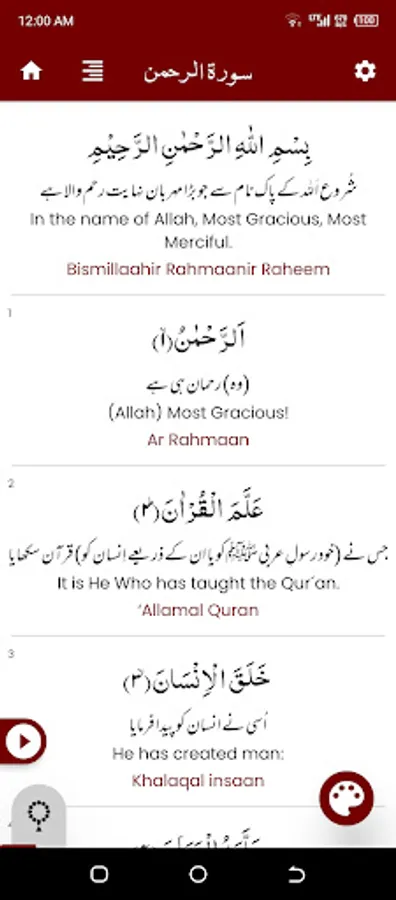 12:00 AM
سورة الرحمن
بِسْمِ اللهِ الرَّحْمٰنِ الرَّحِيْمِ
شُروع اَللہ کے پاک نام سے جو بڑا مہربان نہایت رحم والا ہے
In the name of Allah, Most Gracious, Most
Merciful.
Bismillaahir Rahmaanir Raheem
1
اَلرَّحْمٰنُ(۱)
(وہ) رحمان ہی ہے
(Allah) Most Gracious!
Ar Rahmaan
2
عَلَّمَ الْقُرْاٰنَ(۲)
جس نے (خود رسولِ عربی ﷺ کو یا ان کے ذریعے اِنسان کو) قرآن سکھایا
It is He Who has taught the Qur´an.
‘Allamal Quran
3
خَلَقَ الْاِنْسَانَ(۳)
اُسی نے انسان کو پیدا فرمایا
He has created man:
Khalaqal insaan